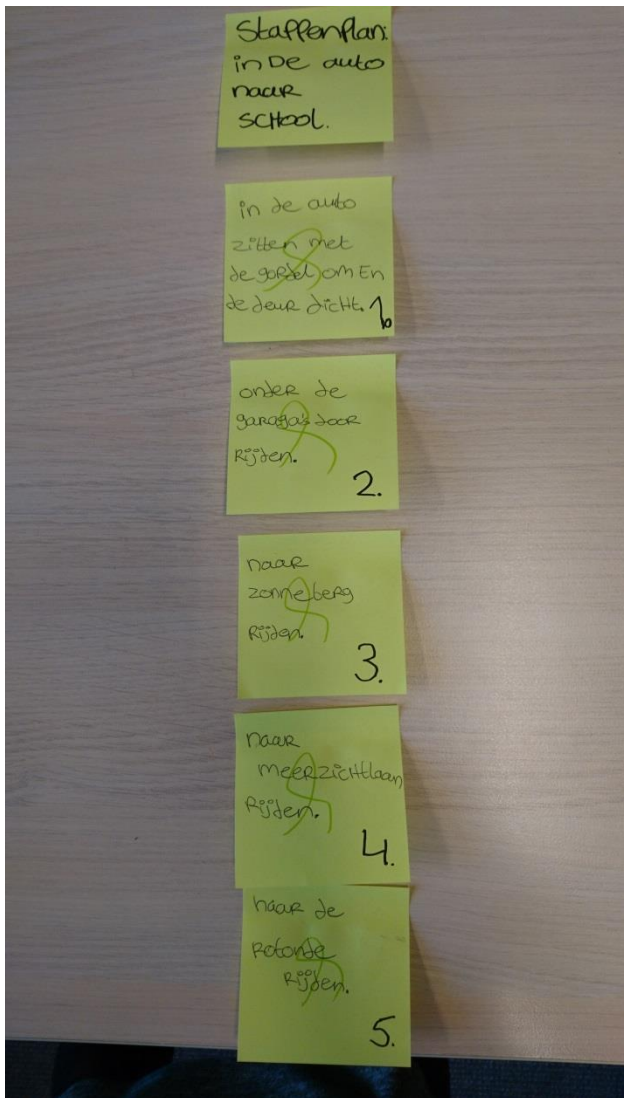 Stappenplan:
in De auto
naar
SCHool.
in de auto
zitten met
de gordel om En
de deur dicht. 1.
onder de
garaga's door
Rijden.
2.
naar
zonneberg
Rijden.
3.
naar
meerzichtlaan
Rijden.
4.
naar de
Rotonde
Rijden.
5.